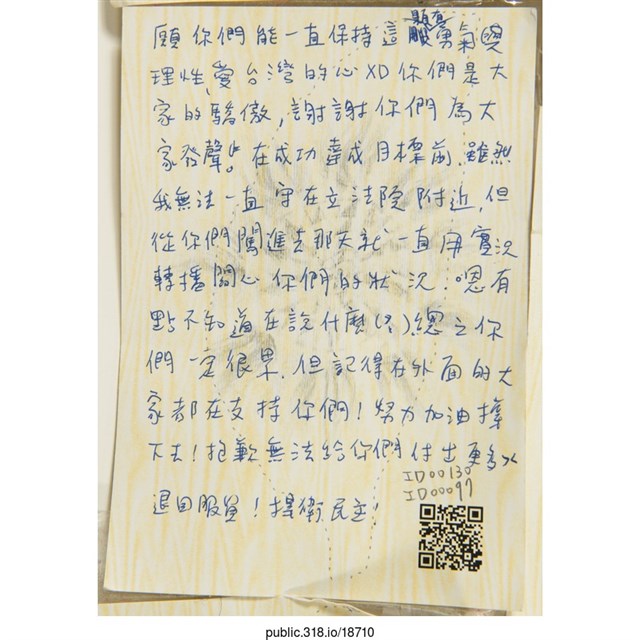 願你們能一直保持這顆有勇氣與
理性,愛台灣的心XD你們是大
家的驕傲,謝謝你們為大
家發聲。在成功達成目標前,雖然
我無法一直守在立法院附近,但
從你們闖進去那天就一直用實況
轉播關心你們的狀況。嗯有
點不知道在說什麼(茶)總之你
們一定很累,但記得在外面的大
家都在支持你們!努力加油撐
下去!抱歉無法給你們付出更多
ID00130
ID00097
退回服貿!捍衛民主!
public.318.io/18710